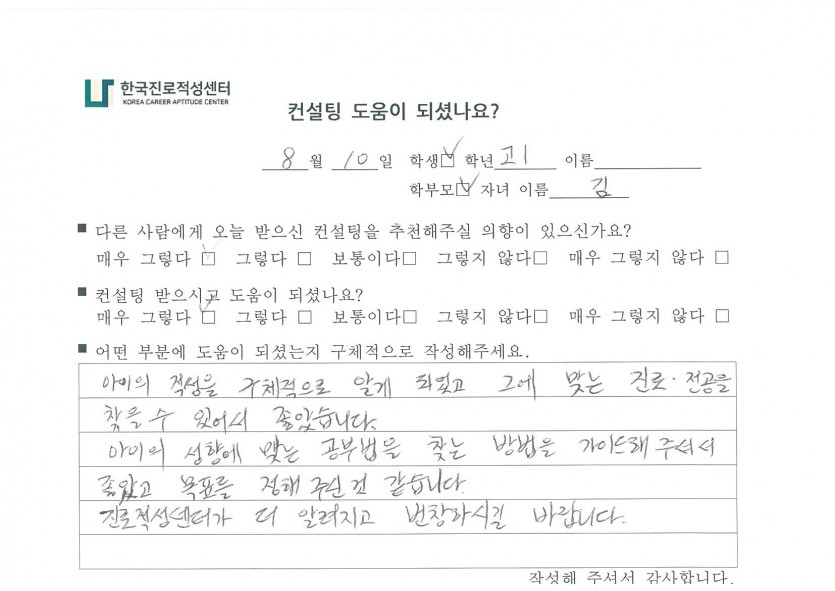 한국진로적성센터
KOREA CAREER APTITUDE CENTER
컨설팅 도움이 되셨나요?
8 월 10 일 학생☑ 학년 고1 이름
학부모☑ 자녀 이름 김
■ 다른 사람에게 오늘 받으신 컨설팅을 추천해주실 의향이 있으신가요?
매우 그렇다 ☑ 그렇다 □ 보통이다□ 그렇지 않다□ 매우 그렇지 않다 □
■ 컨설팅 받으시고 도움이 되셨나요?
매우 그렇다 ☑ 그렇다 □ 보통이다□ 그렇지 않다□ 매우 그렇지 않다 □
■ 어떤 부분에 도움이 되셨는지 구체적으로 작성해주세요.
아이의 적성을 구체적으로 알게 되었고 그에 맞는 진로·전공를
찾을 수 있어서 좋았습니다.
아이의 성향에 맞는 공부법을 찾는 방법을 가이드해 주셔서
좋았고 목표를 정해 주신 것 같습니다.
진로적성센터가 더 알려지고 번창하시길 바랍니다.
작성해 주셔서 감사합니다.